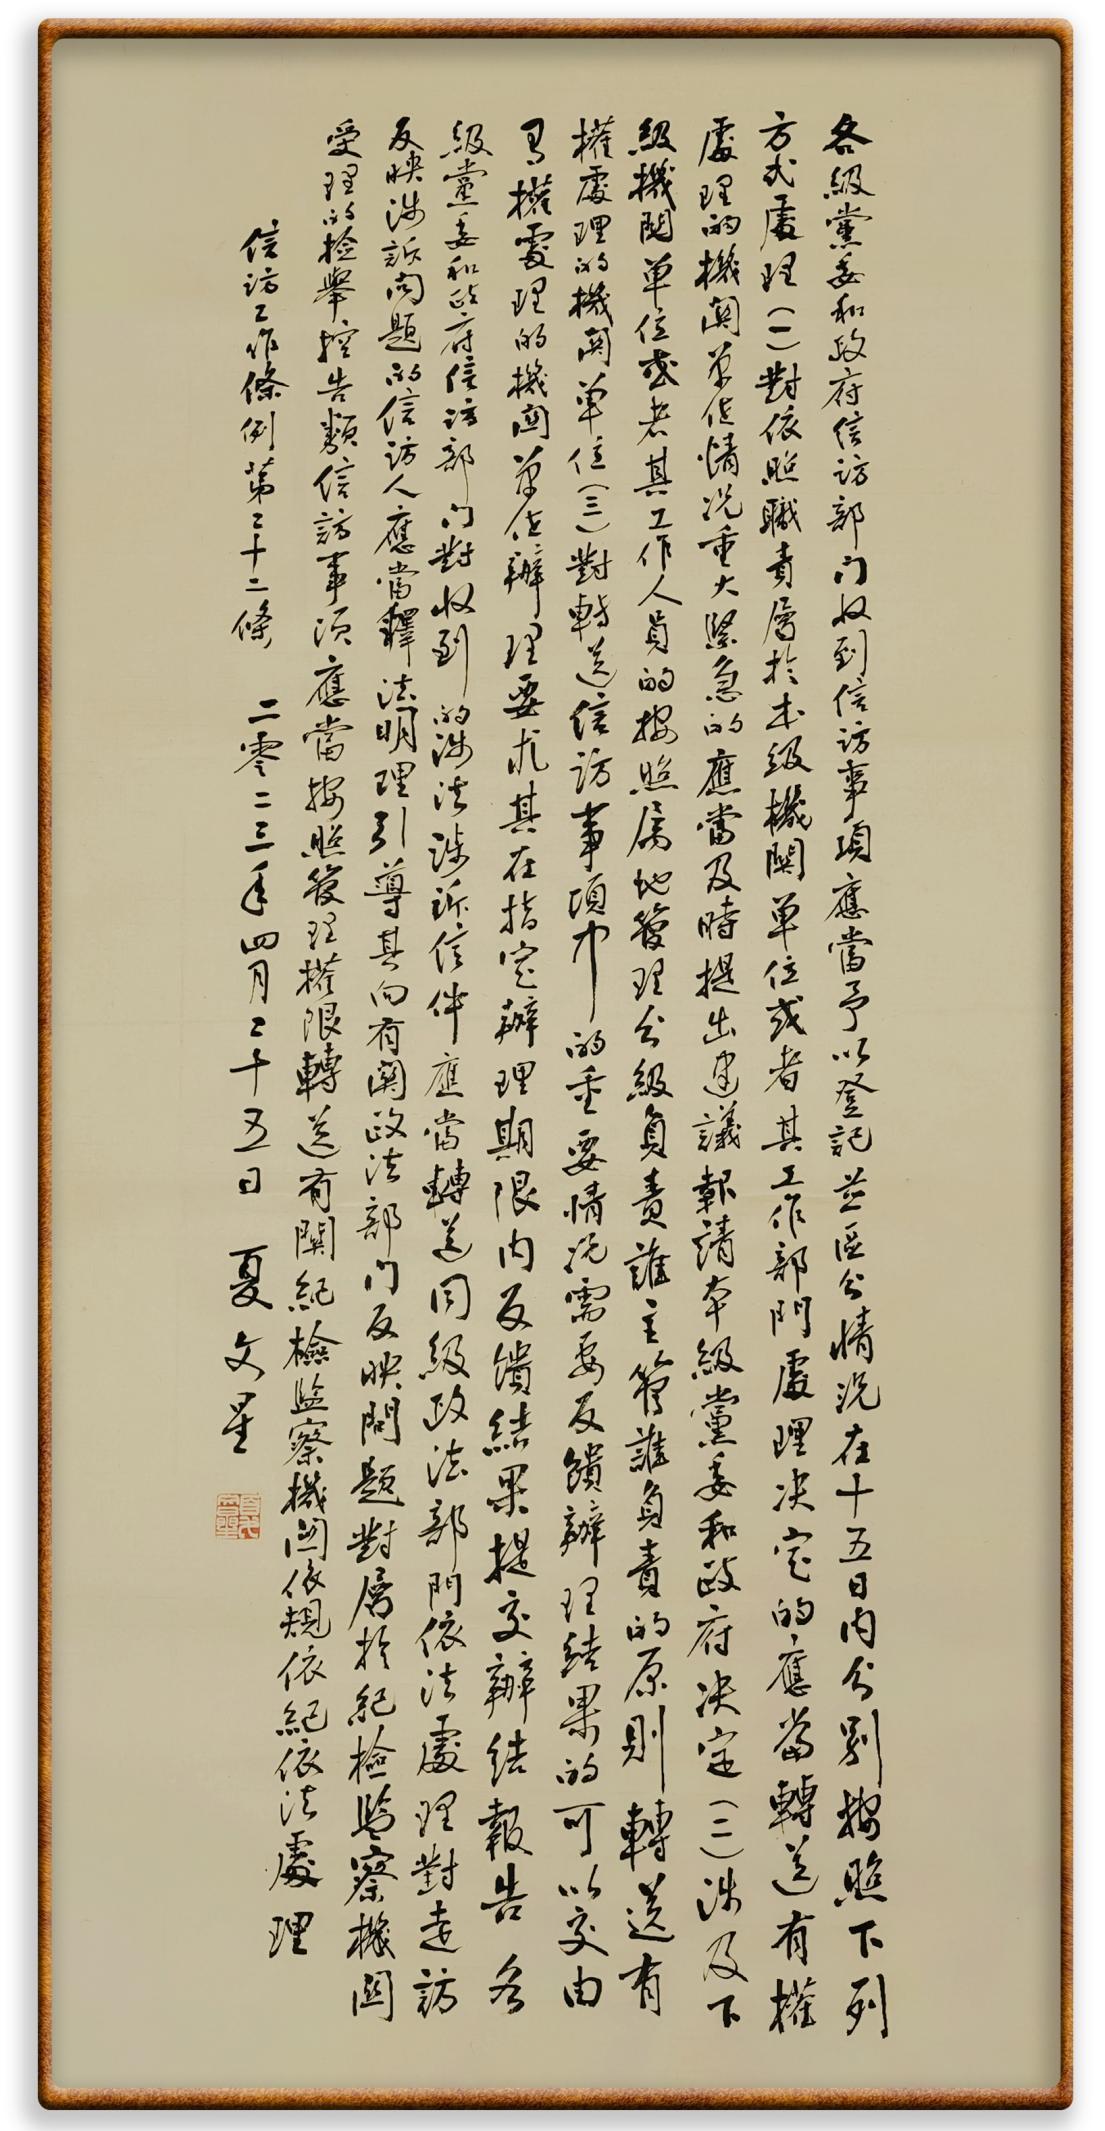 各級黨委和政府信訪部门收到信訪事項應當予以登記並區分情况在十五日内分别按照下列
方式處理（一）對依照職責屬於本级機關單位或者其工作部門處理决定的應當轉送有權
處理的機關單位情况重大緊急的應當及時提出建議報請本級黨委和政府决定（二）涉及下
級機關單位或者其工作人員的按照属地管理分級負責誰主管誰負責的原則轉送有
權處理的機關單位（三）對轉送信訪事項中的重要情况需要反饋辦理結果的可以交由
有權處理的機關單位辦理要求其在指定辦理期限内反饋結果提交辦結報告各
級黨委和政府信訪部门對收到的涉法涉訴信件應當轉送同級政法部門依法處理對走訪
反映涉訴問題的信訪人應當釋法明理引導其向有關政法部门反映問題對屬於紀檢監察機關
受理的檢舉控告類信訪事項應當按照管理權限轉送有關紀檢監察機關依規依紀依法處理
信訪工作條例第二十二條 二零二三年四月二十五日 夏文星